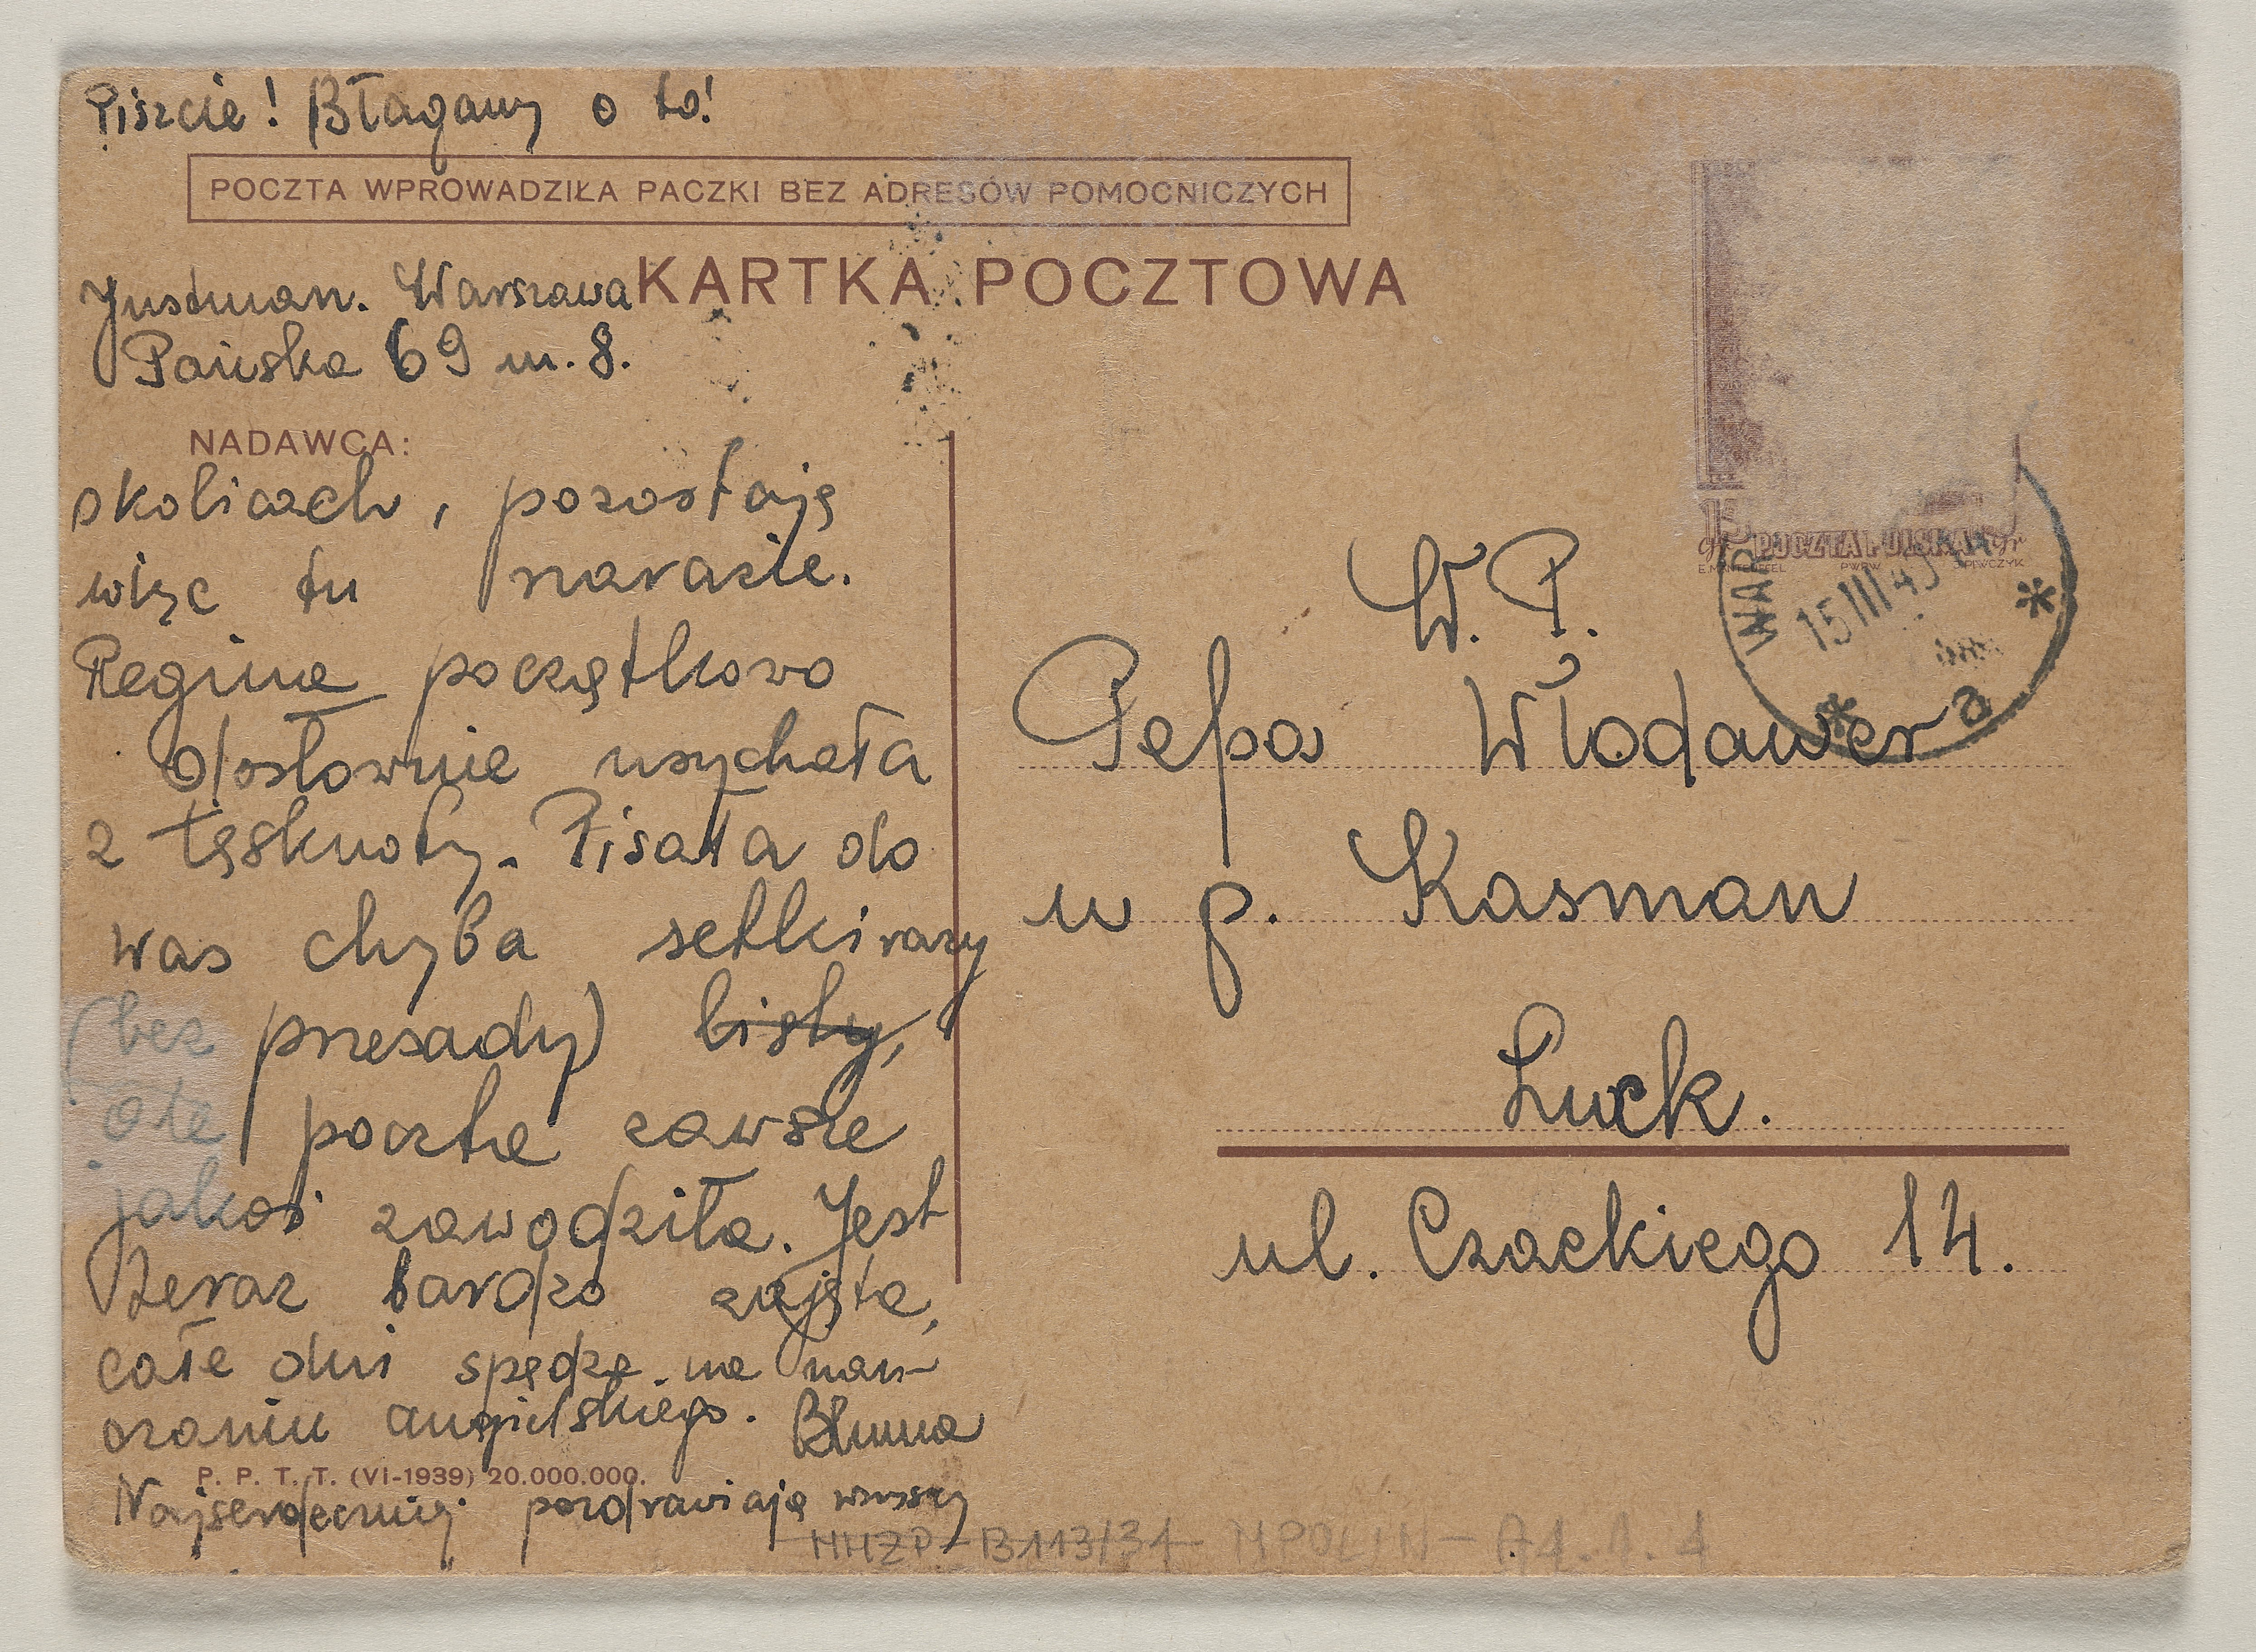 Piszcie! Błagamy o to!
POCZTA WPROWADZIŁA PACZKI BEZ ADRESÓW POMOCNICZYCH
KARTKA POCZTOWA
Justman. Warszawa
Pańska 69 m. 8.
NADAWCA:
okolicach, pozostają
więc tu narazie.
Regina początkowo
dosłownie usychała
z tęsknoty. Pisała do
was chyba setki razy
(bez przesady) listy,
ale poczta zawsze
jakoś zawodziła. Jest
teraz bardzo zajęta,
całe dni spędza na nau-
czaniu angielskiego. Bluma
P. P. T. T. (VI-1939) 20.000.000.
Najserdeczniej pozdrawiają wszyscy
15 gr POCZTA POLSKA gr
PWPW
WAR
15 III
a
W. P.
Pepa Włodawer
u p. Kasman
Łuck.
ul. Czackiego 14.
HHZP-B113/31 MPOLIN-A1.1.1